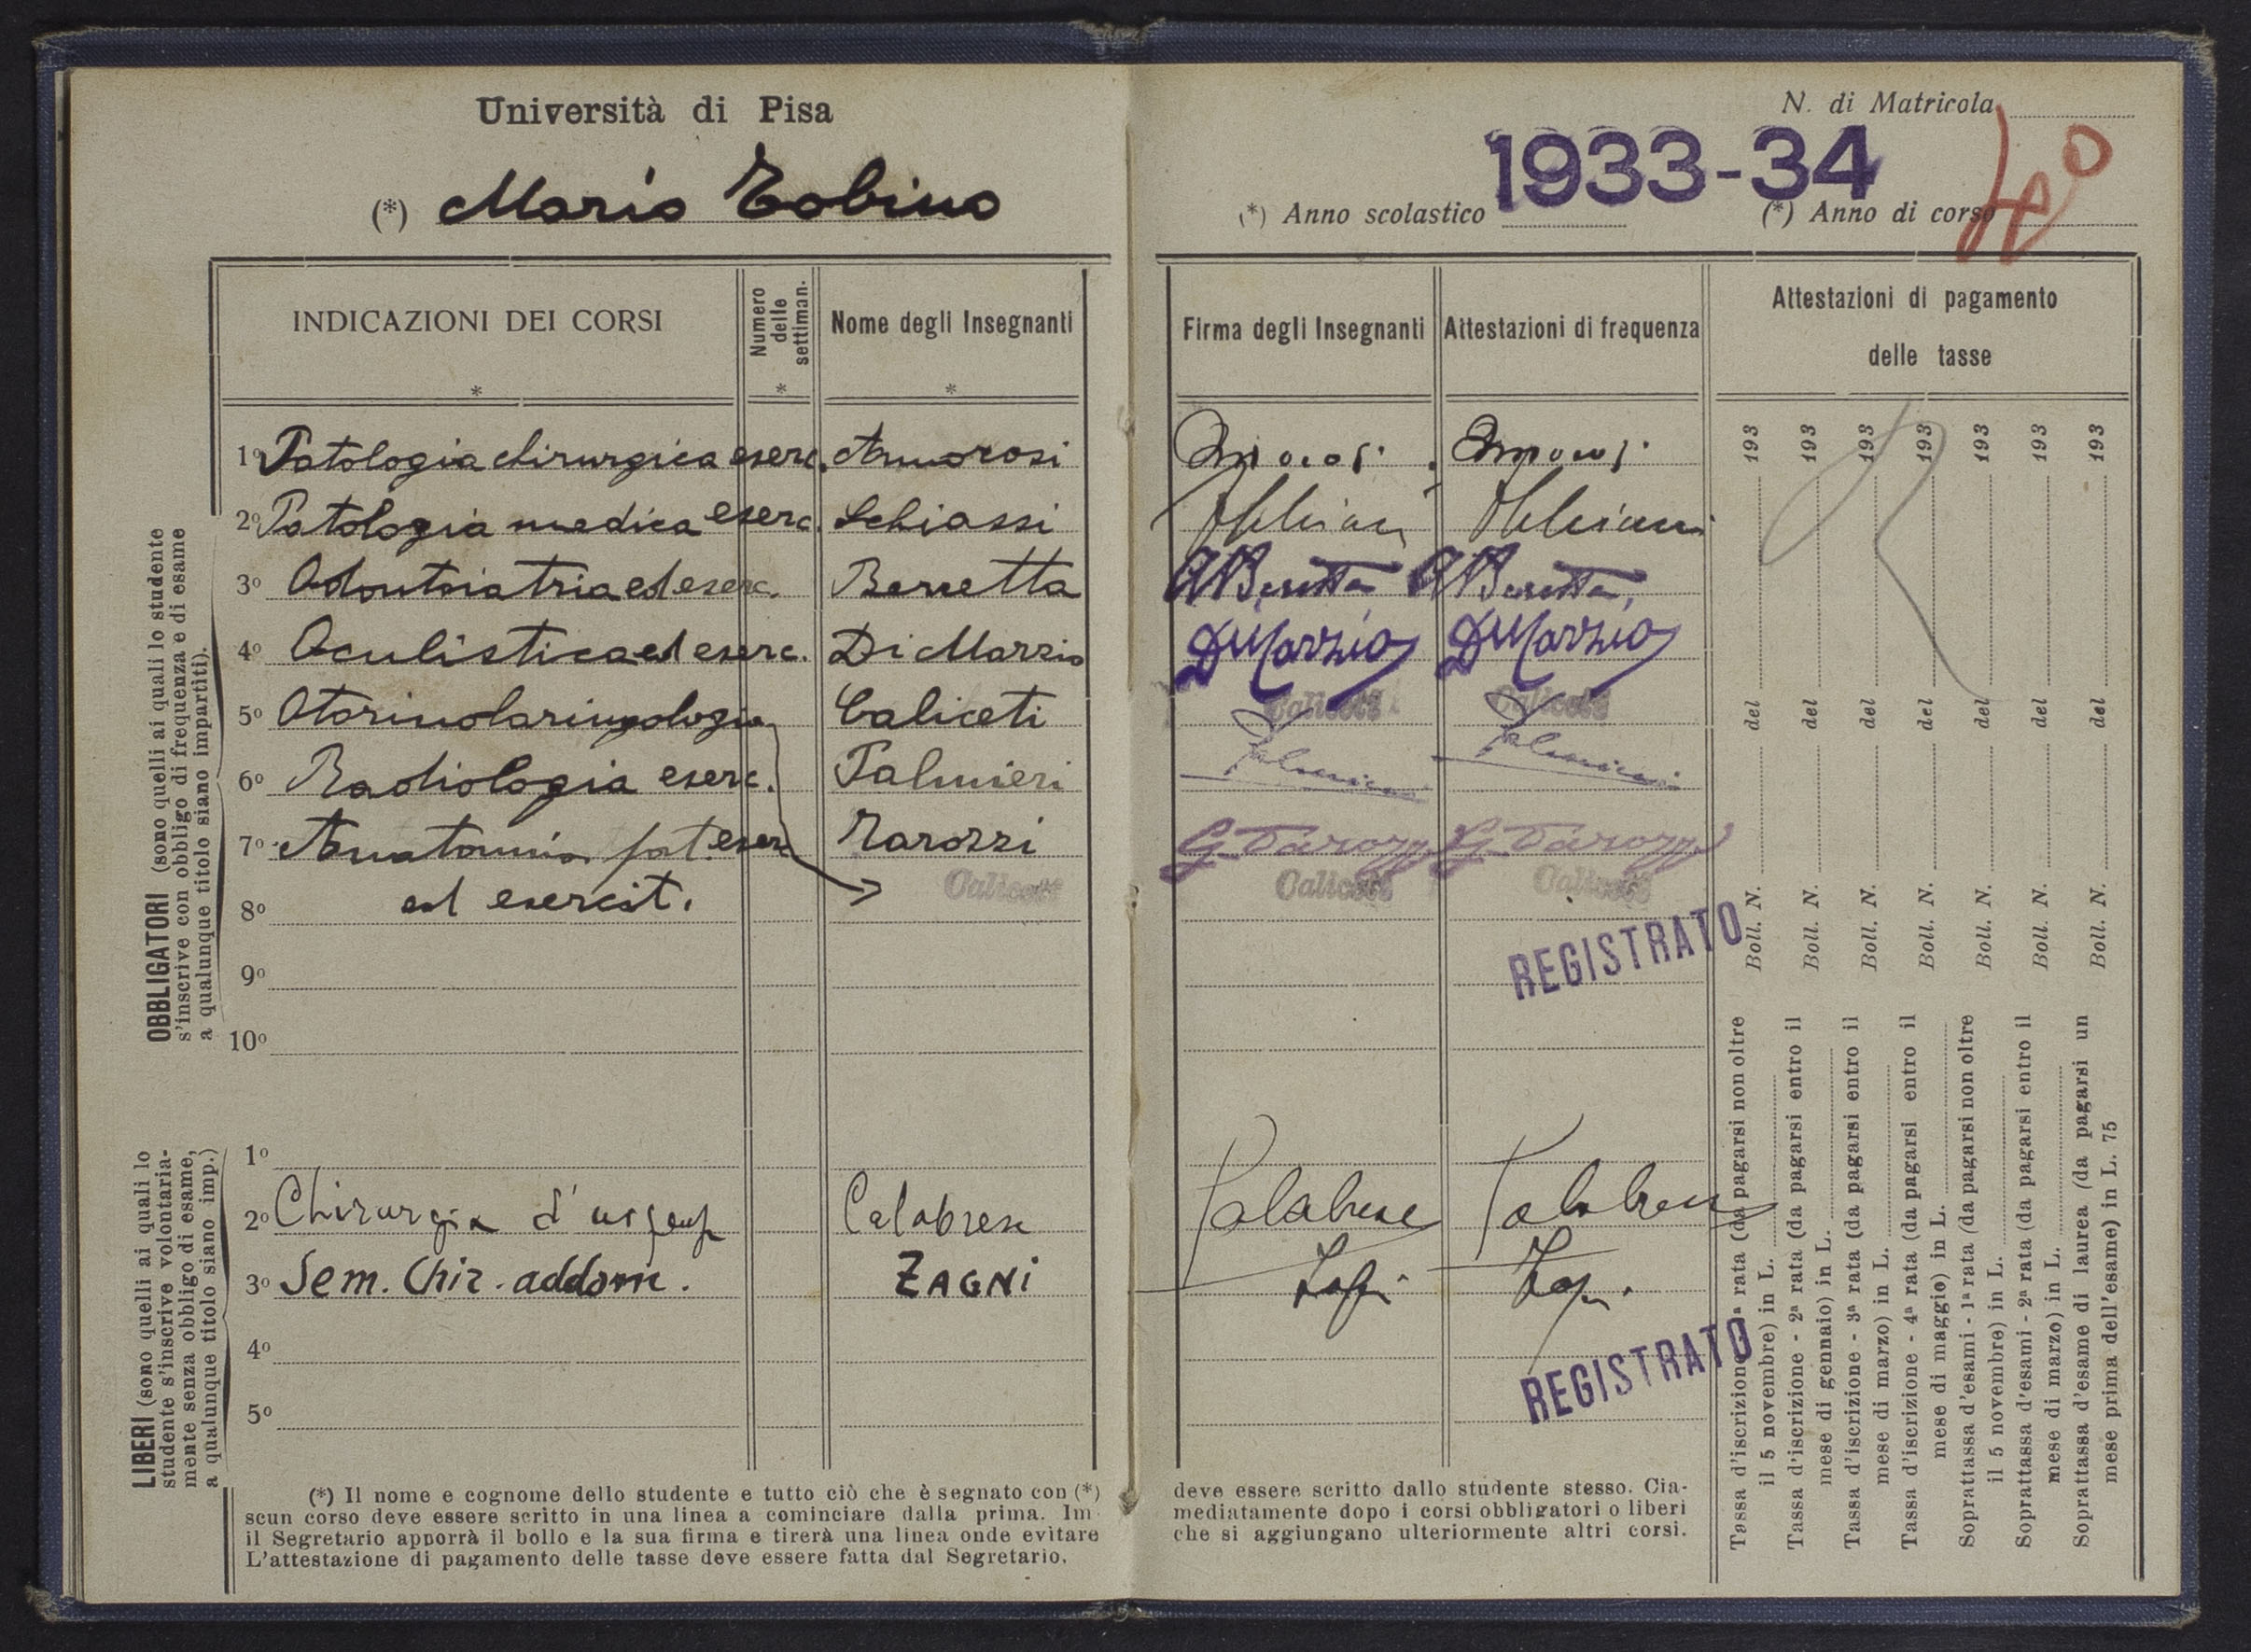 Università di Pisa
(*) Mario Tobino
INDICAZIONI DEI CORSI
*
Numero delle settiman.
*
Nome degli Insegnanti
*
OBBLIGATORI (sono quelli ai quali lo studente
s'inscrive con obbligo di frequenza e di esame
a qualunque titolo siano impartiti).
1º Patologia chirurgica eserc. Amorosi
2º Patologia medica eserc. Schiassi
3º Odontoiatria ed eserc. Berretta
4º Oculistica ed eserc. Di Marzio
5º Otorinolaringologia Caliceti
6º Radiologia eserc. Palmieri
7º Anatomia pat. eserc Tarozzi
8º ed esercit. Caliceti
9º
10º
LIBERI (sono quelli ai quali lo
studente s'inscrive volontaria-
mente senza obbligo di esame,
a qualunque titolo siano imp.)
1º
2º Chirurgia d' Calabrese
3º Sem. Chir. addom. ZAGNI
4º
5º
(*) Il nome e cognome dello studente e tutto ciò che è segnato con (*)
scun corso deve essere scritto in una linea a cominciare dalla prima. Im
il Segretario apporrà il bollo e la sua firma e tirerà una linea onde evitare
L'attestazione di pagamento delle tasse deve essere fatta dal Segretario.
N. di Matricola
1933-34
(*) Anno scolastico
(*) Anno di corso 4º
Firma degli Insegnanti
Attestazioni di frequenza
Attestazioni di pagamento
delle tasse
Amorosi Amorosi
A Beretta A Beretta
Di Marzio Di Marzio
Caliceti Caliceti
Palmieri Palmieri
G. Tarozzi G. Tarozzi
Caliceti Caliceti
REGISTRATO
Calabrese Calabrese
Zagni Zagni
REGISTRATO
deve essere scritto dallo studente stesso. Cia-
mediatamente dopo i corsi obbligatori o liberi
che si aggiungano ulteriormente altri corsi.
Tassa d'iscrizione - 1ª rata (da pagarsi non oltre
il 5 novembre) in L.
Boll. N. del 193
Tassa d'iscrizione - 2ª rata (da pagarsi entro il
mese di gennaio) in L.
Boll. N. del 193
Tassa d'iscrizione - 3ª rata (da pagarsi entro il
mese di marzo) in L.
Boll. N. del 193
Tassa d'iscrizione - 4ª rata (da pagarsi entro il
mese di maggio) in L.
Boll. N. del 193
Soprattassa d'esami - 1ª rata (da pagarsi non oltre
il 5 novembre) in L.
Boll. N. del 193
Soprattassa d'esami - 2ª rata (da pagarsi entro il
mese di marzo) in L.
Boll. N. del 193
Soprattassa d'esame di laurea (da pagarsi un
mese prima dell'esame) in L. 75
Boll. N. del 193